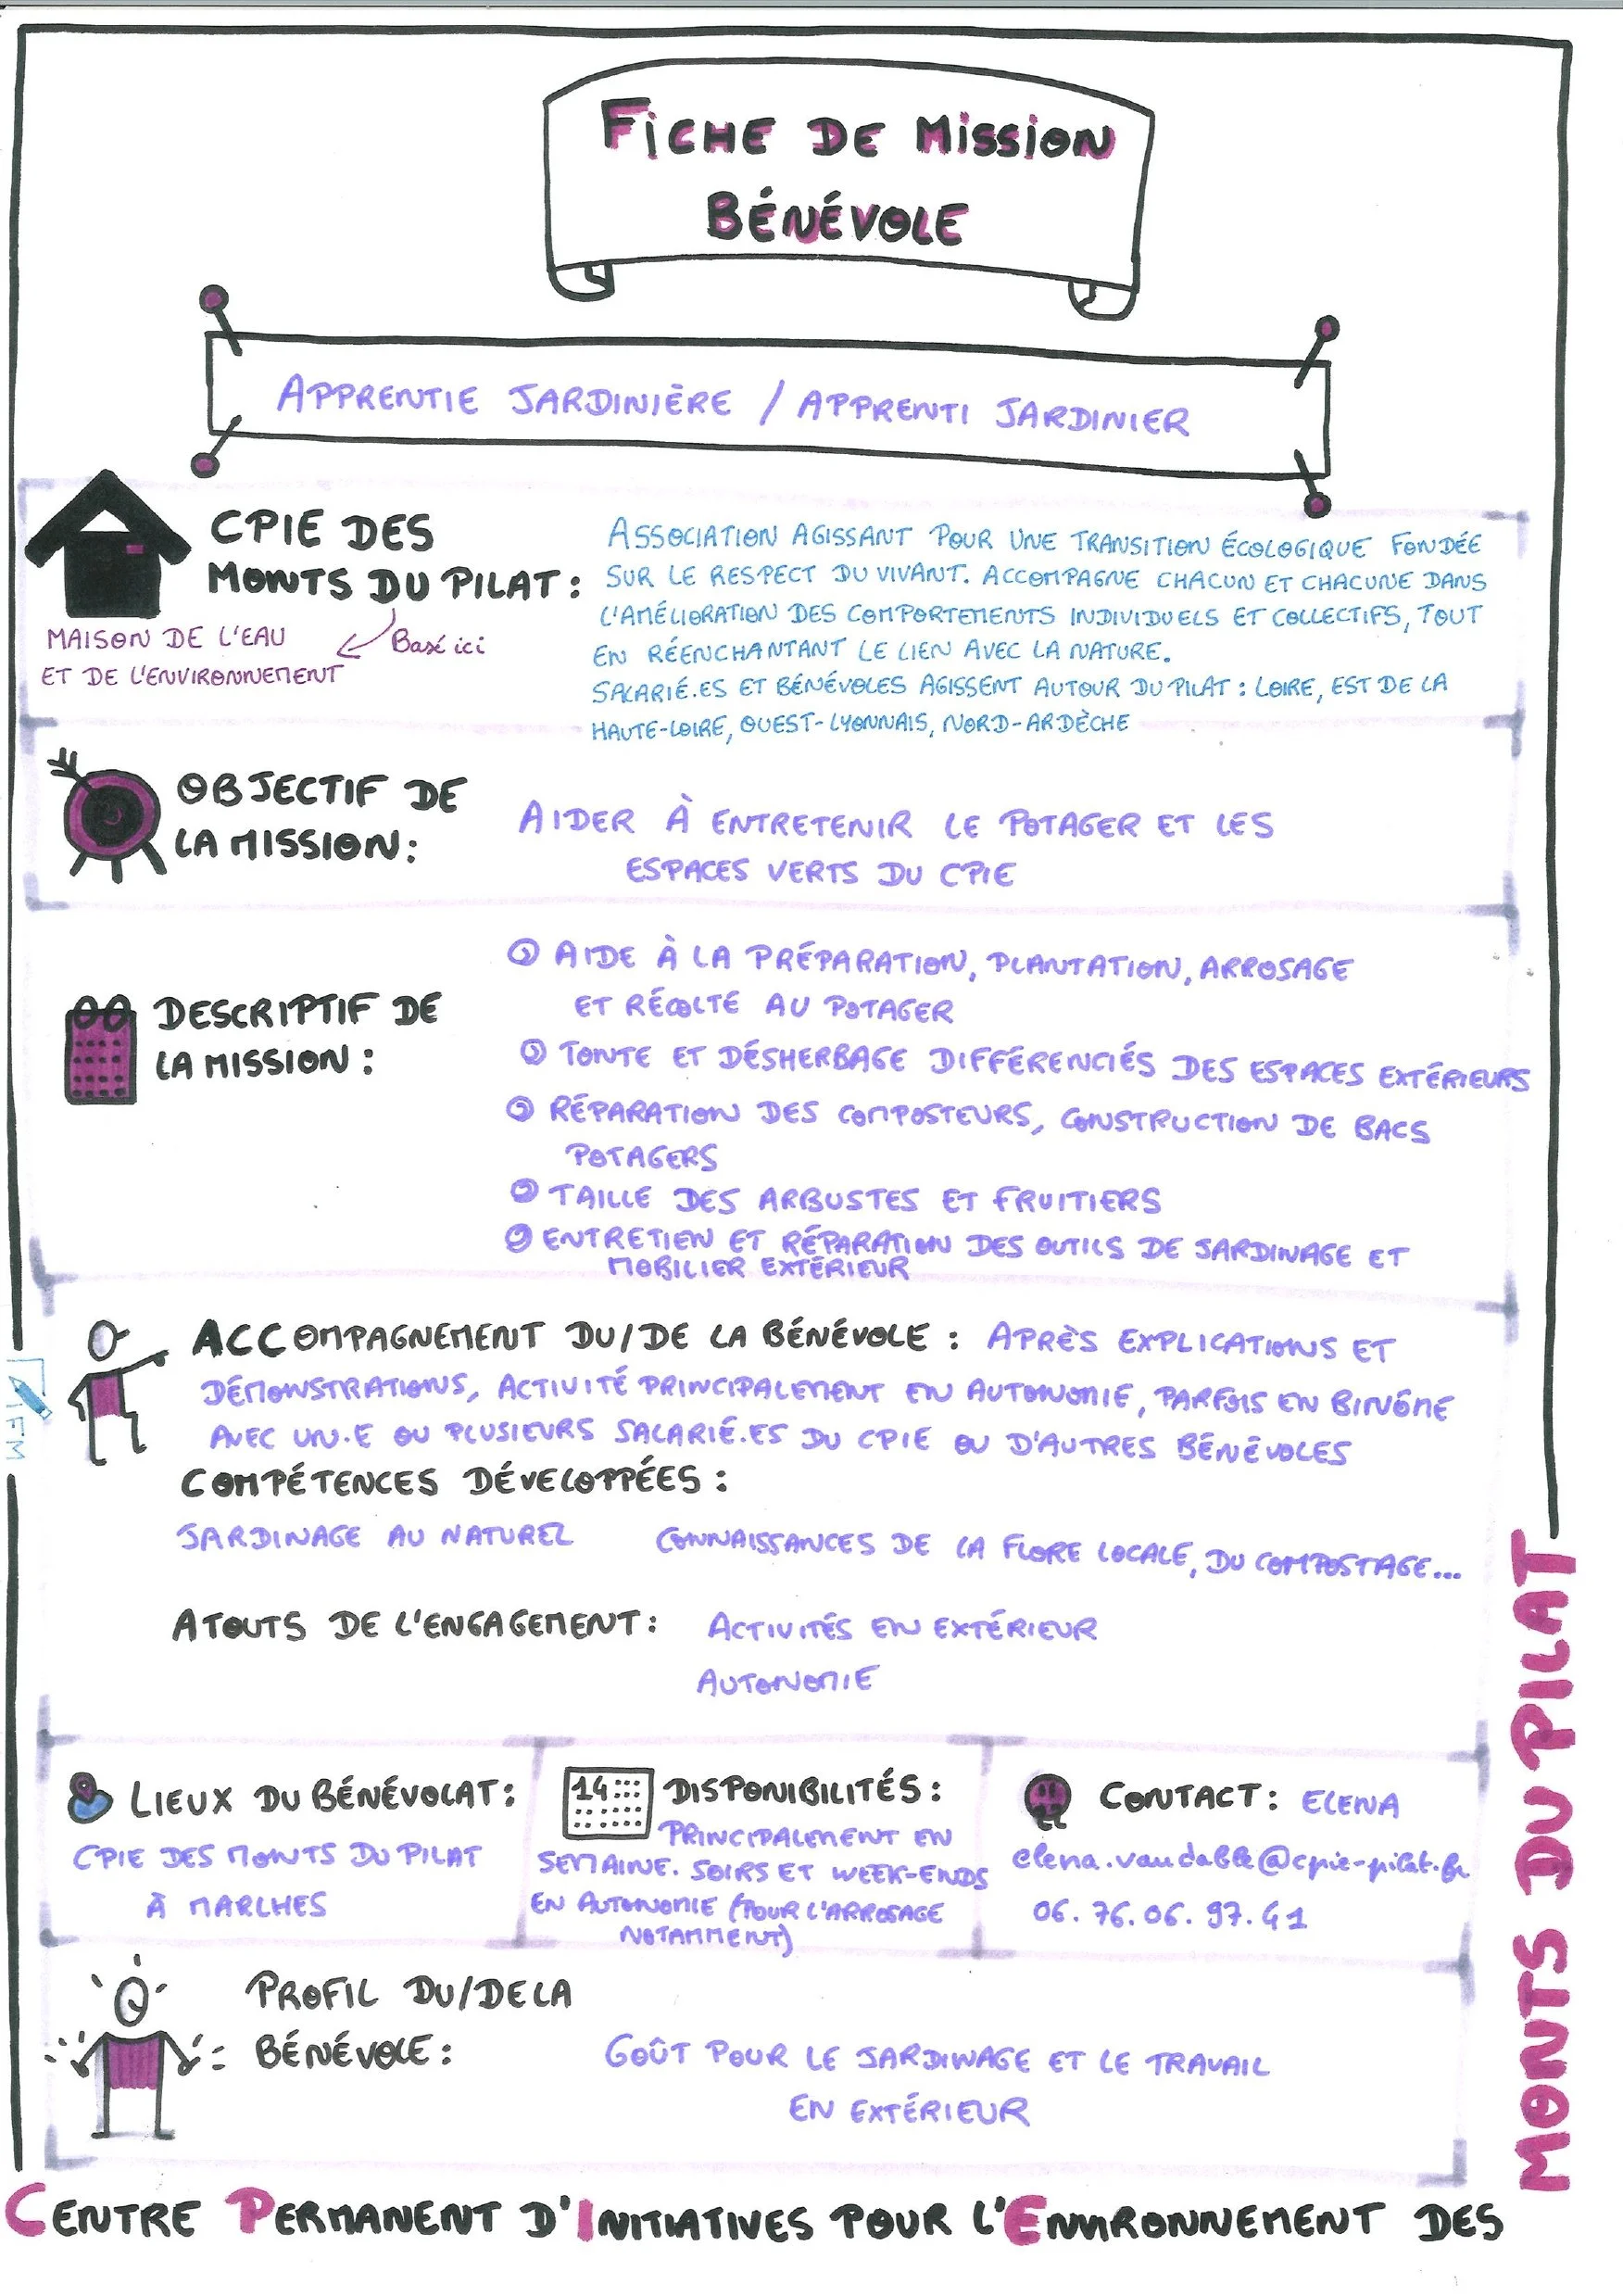 FICHE DE MISSION
BÉNÉVOLE
APPRENTIE JARDINIÈRE / APPRENTI JARDINIER
CPIE DES
MONTS DU PILAT :
MAISON DE L'EAU
ET DE L'ENVIRONNEMENT
Basé ici
ASSOCIATION AGISSANT POUR UNE TRANSITION ÉCOLOGIQUE FONDÉE
SUR LE RESPECT DU VIVANT. ACCOMPAGNE CHACUN ET CHACUNE DANS
L'AMÉLIORATION DES COMPORTEMENTS INDIVIDUELS ET COLLECTIFS, TOUT
EN RÉENCHANTANT LE LIEN AVEC LA NATURE.
SALARIÉ.ES ET BÉNÉVOLES AGISSENT AUTOUR DU PILAT : LOIRE, EST DE LA
HAUTE-LOIRE, OUEST-LYONNAIS, NORD-ARDÈCHE
OBJECTIF DE
LA MISSION :
AIDER À ENTRETENIR LE POTAGER ET LES
ESPACES VERTS DU CPIE
DESCRIPTIF DE
LA MISSION :
AIDE À LA PRÉPARATION, PLANTATION, ARROSAGE
ET RÉCOLTE AU POTAGER
TONTE ET DÉSHERBAGE DIFFÉRENCIÉS DES ESPACES EXTÉRIEURS
RÉPARATION DES COMPOSTEURS, CONSTRUCTION DE BACS
POTAGERS
TAILLE DES ARBUSTES ET FRUITIERS
ENTRETIEN ET RÉPARATION DES OUTILS DE JARDINAGE ET
MOBILIER EXTÉRIEUR
ACCOMPAGNEMENT DU/DE LA BÉNÉVOLE : APRÈS EXPLICATIONS ET
DÉMONSTRATIONS, ACTIVITÉ PRINCIPALEMENT EN AUTONOMIE, PARFOIS EN BINÔME
AVEC UN.E OU PLUSIEURS SALARIÉ.ES DU CPIE OU D'AUTRES BÉNÉVOLES
IFM
COMPÉTENCES DÉVELOPPÉES :
JARDINAGE AU NATUREL CONNAISSANCES DE LA FLORE LOCALE, DU COMPOSTAGE...
ATOUTS DE L'ENGAGEMENT : ACTIVITÉS EN EXTÉRIEUR
AUTONOMIE
LIEUX DU BÉNÉVOLAT :
CPIE DES MONTS DU PILAT
À MARLHES
14
DISPONIBILITÉS :
PRINCIPALEMENT EN
SEMAINE. SOIRS ET WEEK-ENDS
EN AUTONOMIE (POUR L'ARROSAGE
NOTAMMENT)
CONTACT : ELENA
elena.vaudable@cpie-pilat.fr
06.76.06.97.41
PROFIL DU/DE LA
BÉNÉVOLE :
GOÛT POUR LE JARDINAGE ET LE TRAVAIL
EN EXTÉRIEUR
CENTRE PERMANENT D'INITIATIVES POUR L'ENVIRONNEMENT DES
MONTS DU PILAT